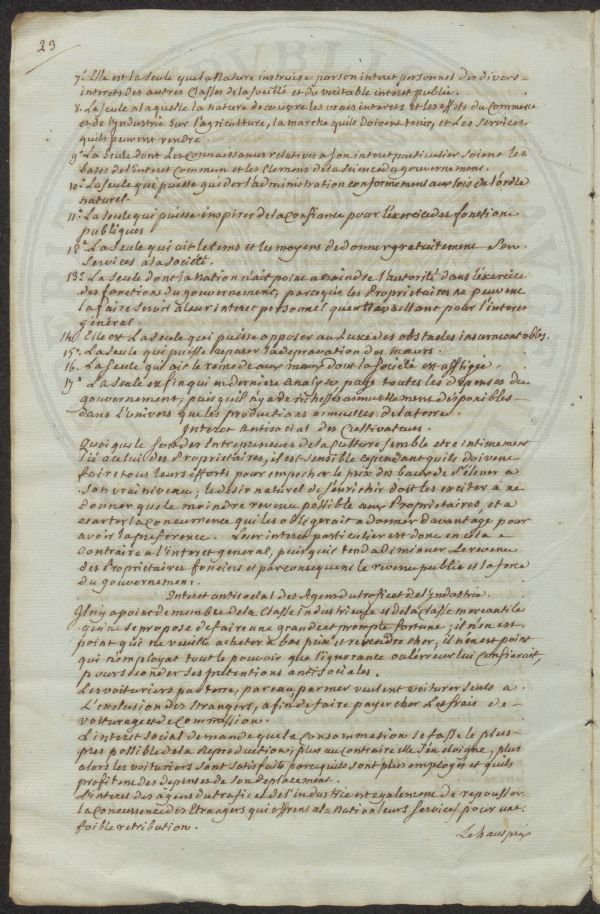 23
7.° Elle est la seule que la Nature instruise par son interet personnel des divers
interets des autres Classes de la societé et du veritable interêt public.
8. La seule a laquelle la nature decouvre les vrais interets et les effets du Commerce
et de l'industrie sur l'agriculture, la marche quils doivent tenir, et Les services
quils peuvent rendre
9.° La Seule dont Les Connaissances relatives a son interet particulier soient les
bases de l'interet Commun et les Elemens de la Science du gouvernement.
10.° La seule qui puisse guider l'administration conformement aux lois de l'ordre
naturel.
11.° La seule qui puisse inspirer de la Confiance pour l'exercice des fonctions
publiques
12.° La Seule qui ait le tems et les moyens de donner gratuitement Son
Services a la Societé.
13.° La Seule dont la Nation n'ait point a craindre l'autorité dans l'exercice
des fonctions du gouvernement, parceque les Proprietaires ne peuvent
la faire servir a leur interet personnel qu'en travaillant pour l'interet
général.
14.° Elle est La seule qui puisse opposer au Luxe des obstacles insurmontables.
15.° La Seule qui puisse reparer la depravation des moeurs.
16. La Seule qui ait le remede aux maux dont la Societé est affligée.
17.° La Seule enfin qui en derniere analyse, paye toutes les depenses du
gouvernement, puisqu'il n'y a de richesses annuellement disponibles
dans L'univers que les productions annuelles de la terre.
Interet Antisocial des Cultivateurs.
Quoique le sort des Entrepreneurs de la Culture semble etre intimement
lié a celui des Proprietaires, il est sensible cependant quils doivent
faire tous leurs efforts pour empecher le prix des baux de s'élever a
son vrai niveau; le desir naturel de s'enrichir doit les exciter a ne
donner que le moindre revenu possible aux Proprietaires, et a
ecarter la Concurrence qui les obligerait a donner d'avantage pour
avoir la preference. Leur interet particulier est donc en cela
Contraire a l'interet general, puisqu'il tend a diminuer Le revenu
des Proprietaires fonciers et par consequent le revenu public et la force
du gouvernement.
Interet antisocial des Agens du trafic et de l'industrie
Il n'y a point de membre de la Classe industrieuse et de la Classe mercantile
qui ne se propose de faire une grande et prompte fortune; il n'en est
point qui ne veuille acheter a bas prix et revendre cher, il n'en est point
qui n'employat tout le pouvoir que l'ignorance ou l'erreur lui Confierait,
pour seconder ses pretentions antisociales.
Les voituriers par terre, par eau, par mer veulent voiturer seuls a
L'exclusion des Etrangers, afin de faire payer cher Les frais de
voiturage et de Commission.
L'interet social demande que la Consommation se fasse le plus
pres possible de la Reproduction; plus au Contraire elle s'en eloigne, plus
alors les voituriers sont satisfaits parcequils sont plus employés et quils
profitent des depenses de son deplacement.
L'interet des agens du trafic et de l'industrie est egalement de repousser
la Concurrence des Etrangers qui offrent a la Nation leurs services pour une
foible retribution.
Le haut prix